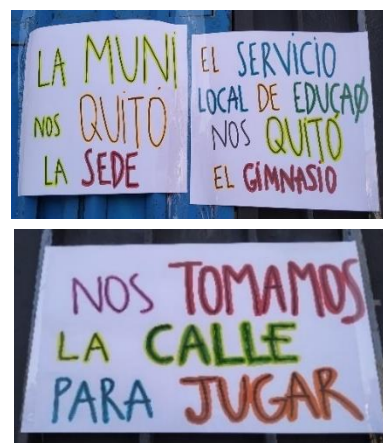 LA MUNI
NOS QUITÓ
LA SEDE
EL SERVICIO
LOCAL DE EDUCAØ
NOS QUITÓ
EL GIMNASIO
NOS TOMAMOS
LA CALLE
PARA JUGAR